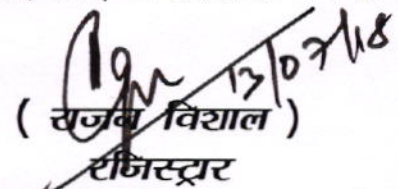 13/07/18
( राजन विशाल )
रजिस्ट्रार